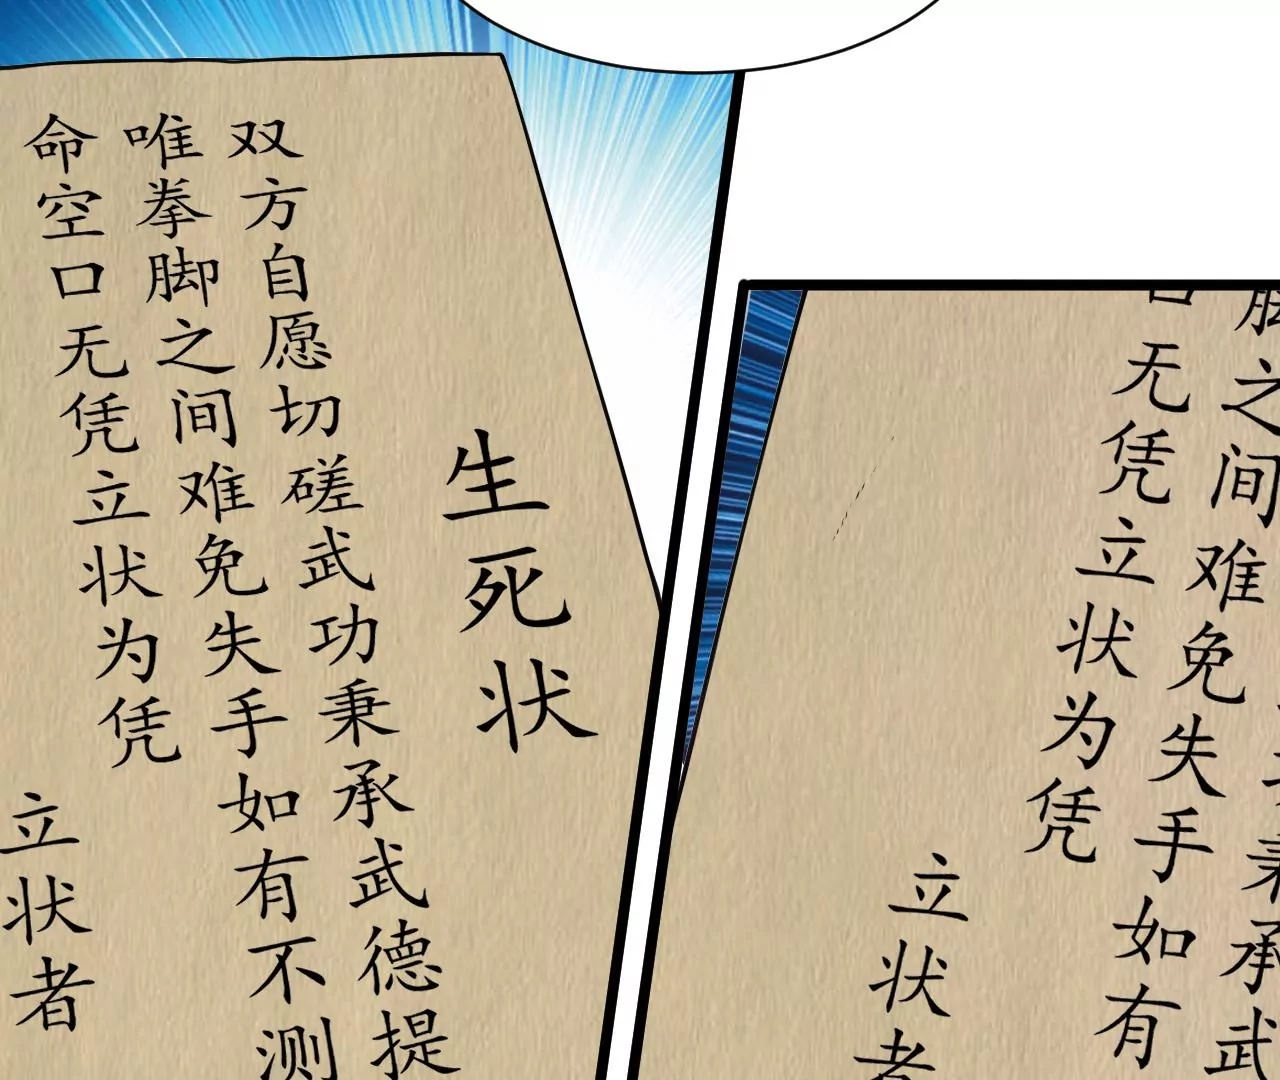 生死状
双方自愿切磋武功秉承武德提
唯拳脚之间难免失手如有不测
命空口无凭立状为凭
立状者
秉承武
脚之间难免失手如有
口无凭立状为凭
立状者